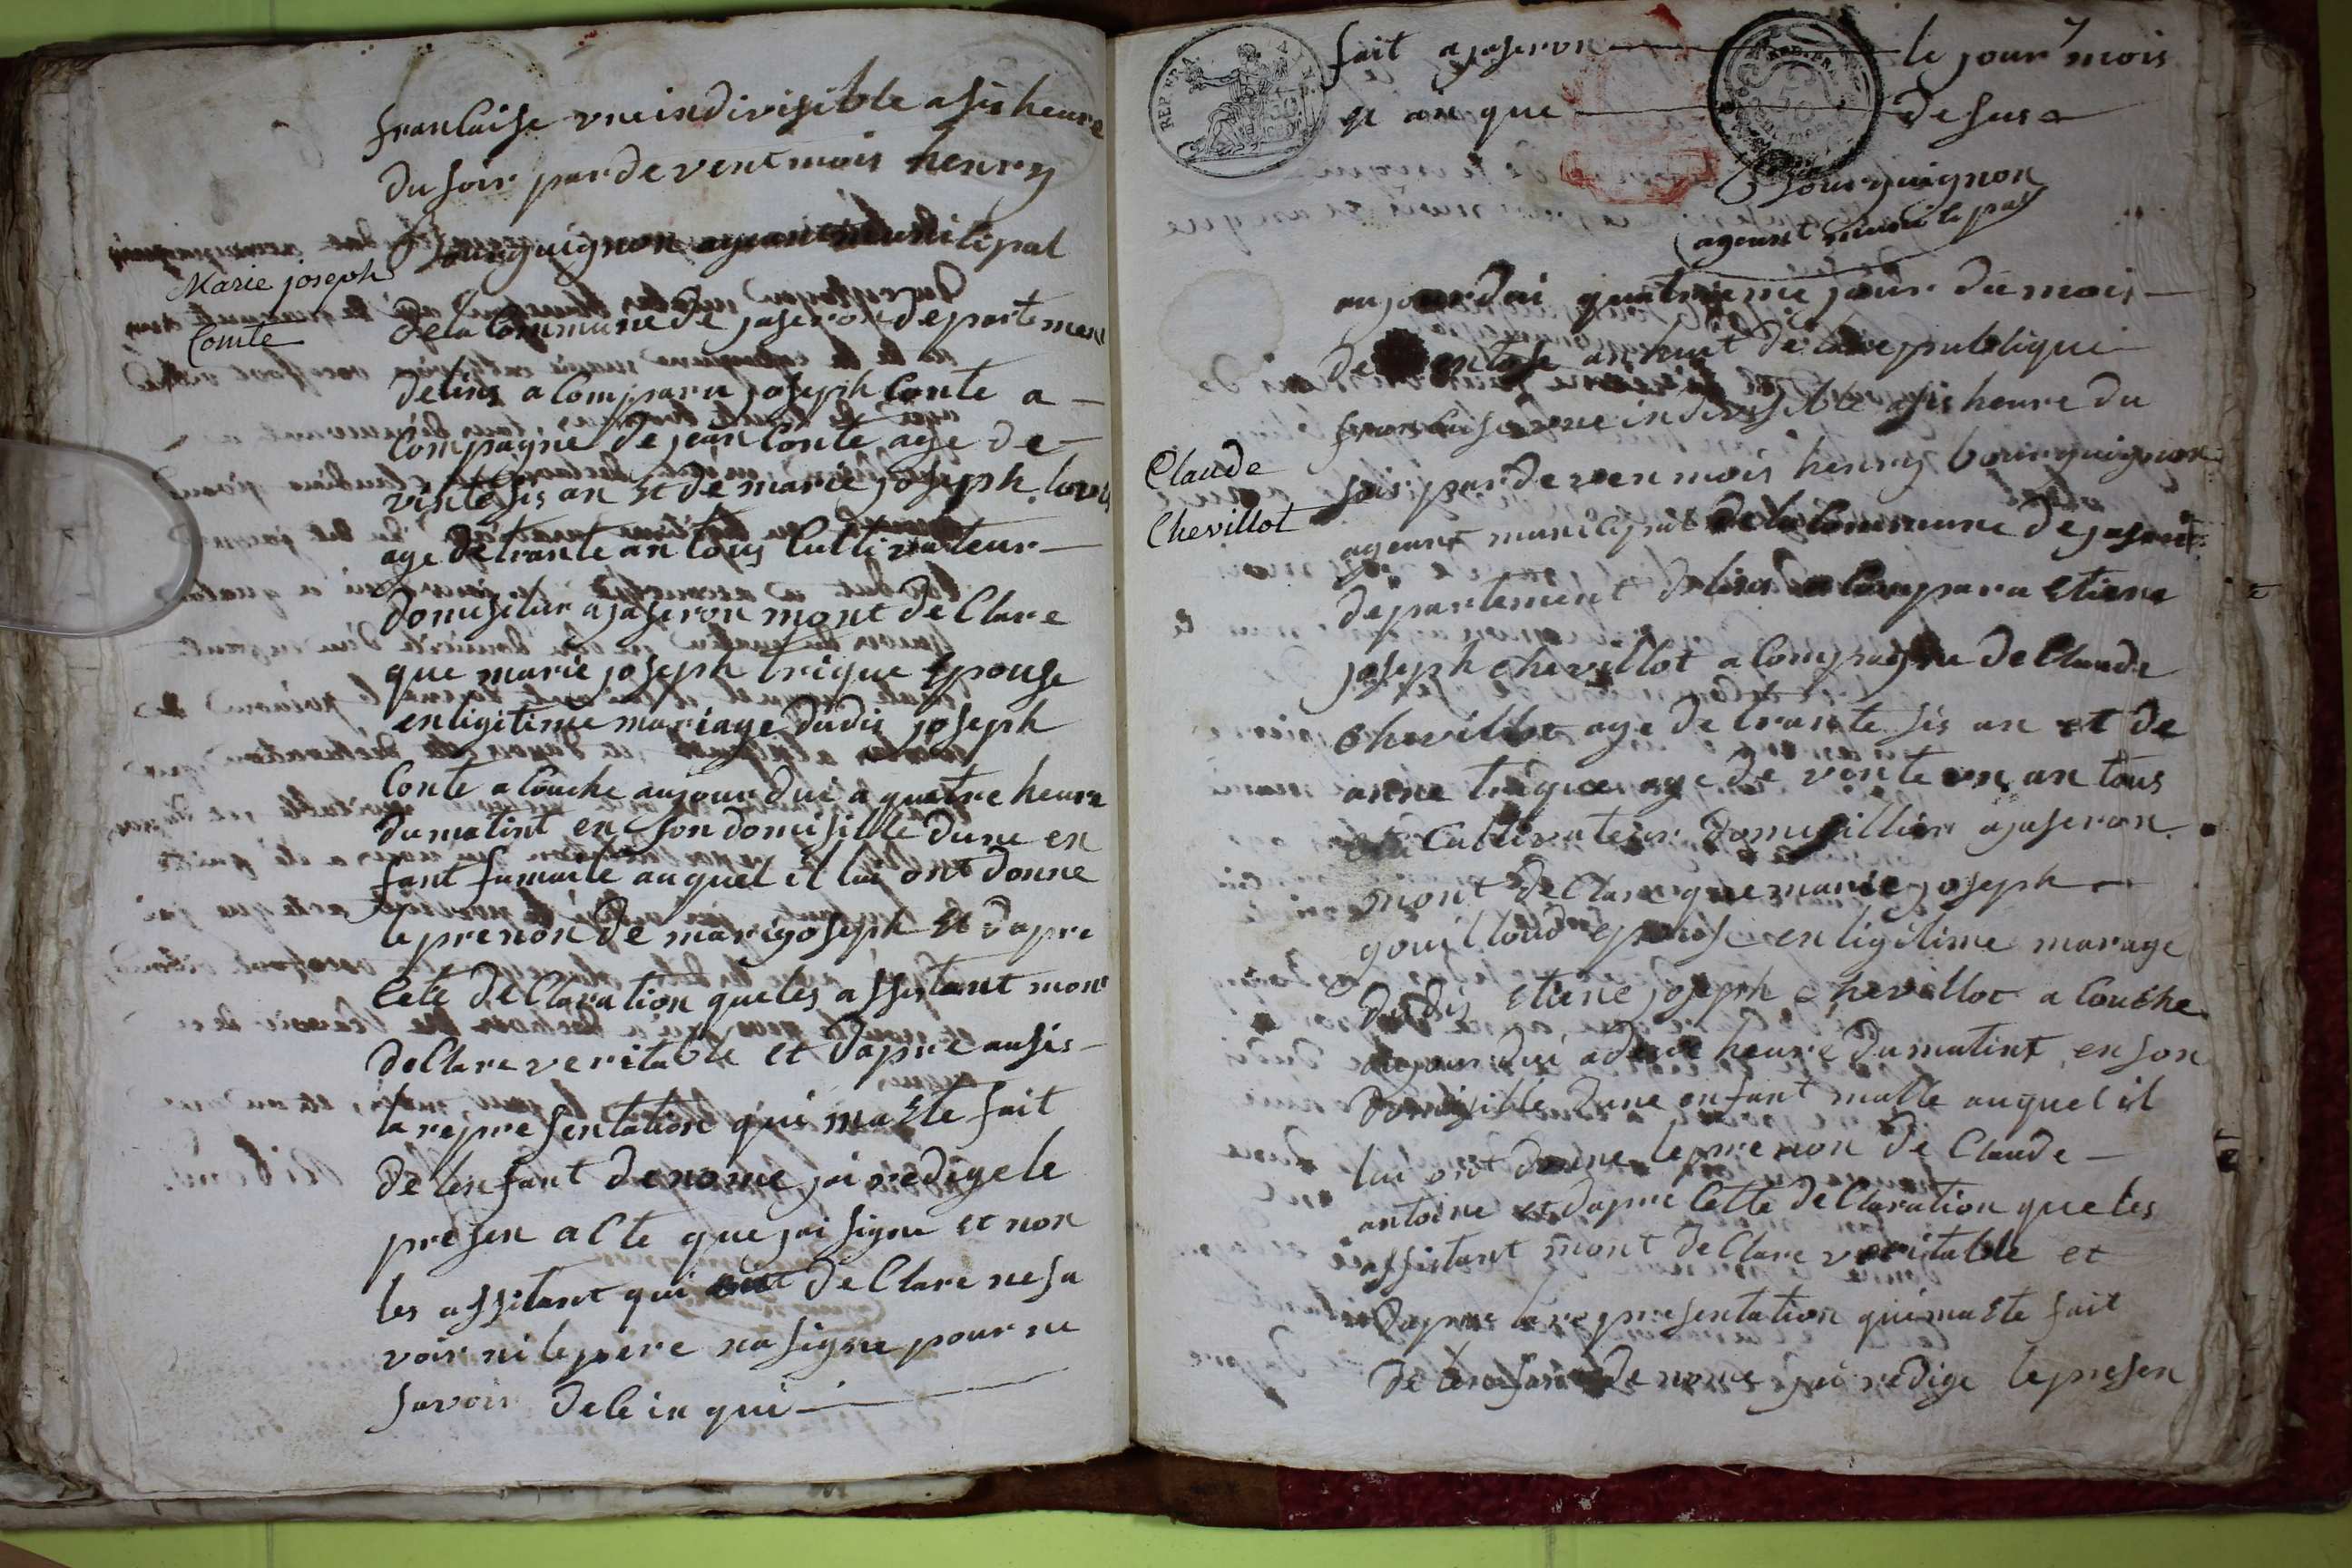 francaise une indivisible a sis heure
du soir par devent mois henry
Bourguignon ageant munitipal
Marie joseph
Comte
de la Commune de jaseron departement
de lins a Comparu joseph Conte a
Compagne de jean Conte age de
vinte sis an et de marie joseph
age de trante an tous Cultivateur
domisilier a jaseron mont de Clare
que marie joseph trique epouse
en ligitime mariage du dis joseph
Conte a Couche aujourdui a quatre heure
du matint en son domisille dune en
fant fumaile auquel il lui ont donne
le prenon de marigoseph et dapre
Cete de Claration que les assistant mont
de Clare veritable et dapre ausis
la representation qui ma ete fait
de lenfant denome jai redige le
presen acte que jai signe et non
les assitant qui ont de Clare ne sa
voir ni le pere na signe pour ne
savoir de le in qui
REP. FRA
fait a jaseron le jour mois
et an que desus
Bourguignon
ageant munitipal
aujourdui quatrieme jour du mois
de ventose an huit de la republique
francaise une indivisible a sis heure du
Claude
Chevillot
soir par deven mois henry bourguignon
ageant municipal de la Commune de jaseron
departement de lins a Comparu etiene
joseph chevillot a Compagne de Claude
chevillot age de trante sis an et de
anne trique age de vinte un an tous
Cultivateur domisillier a jaseron
mont de Clare que marie joseph
gouilloud epouse en ligitime marage
du dis etiene joseph chevillot a Couche
aujourdui a deux heure du matint en son
domisille dune enfant malle auquel il
lui ont donne le prenon de Claude
antoine et dapre Cette de Claration que les
assistant mont de Clare veritable et
dapre la representation qui ma ete fait
de lenfant de nome jai redige le presen